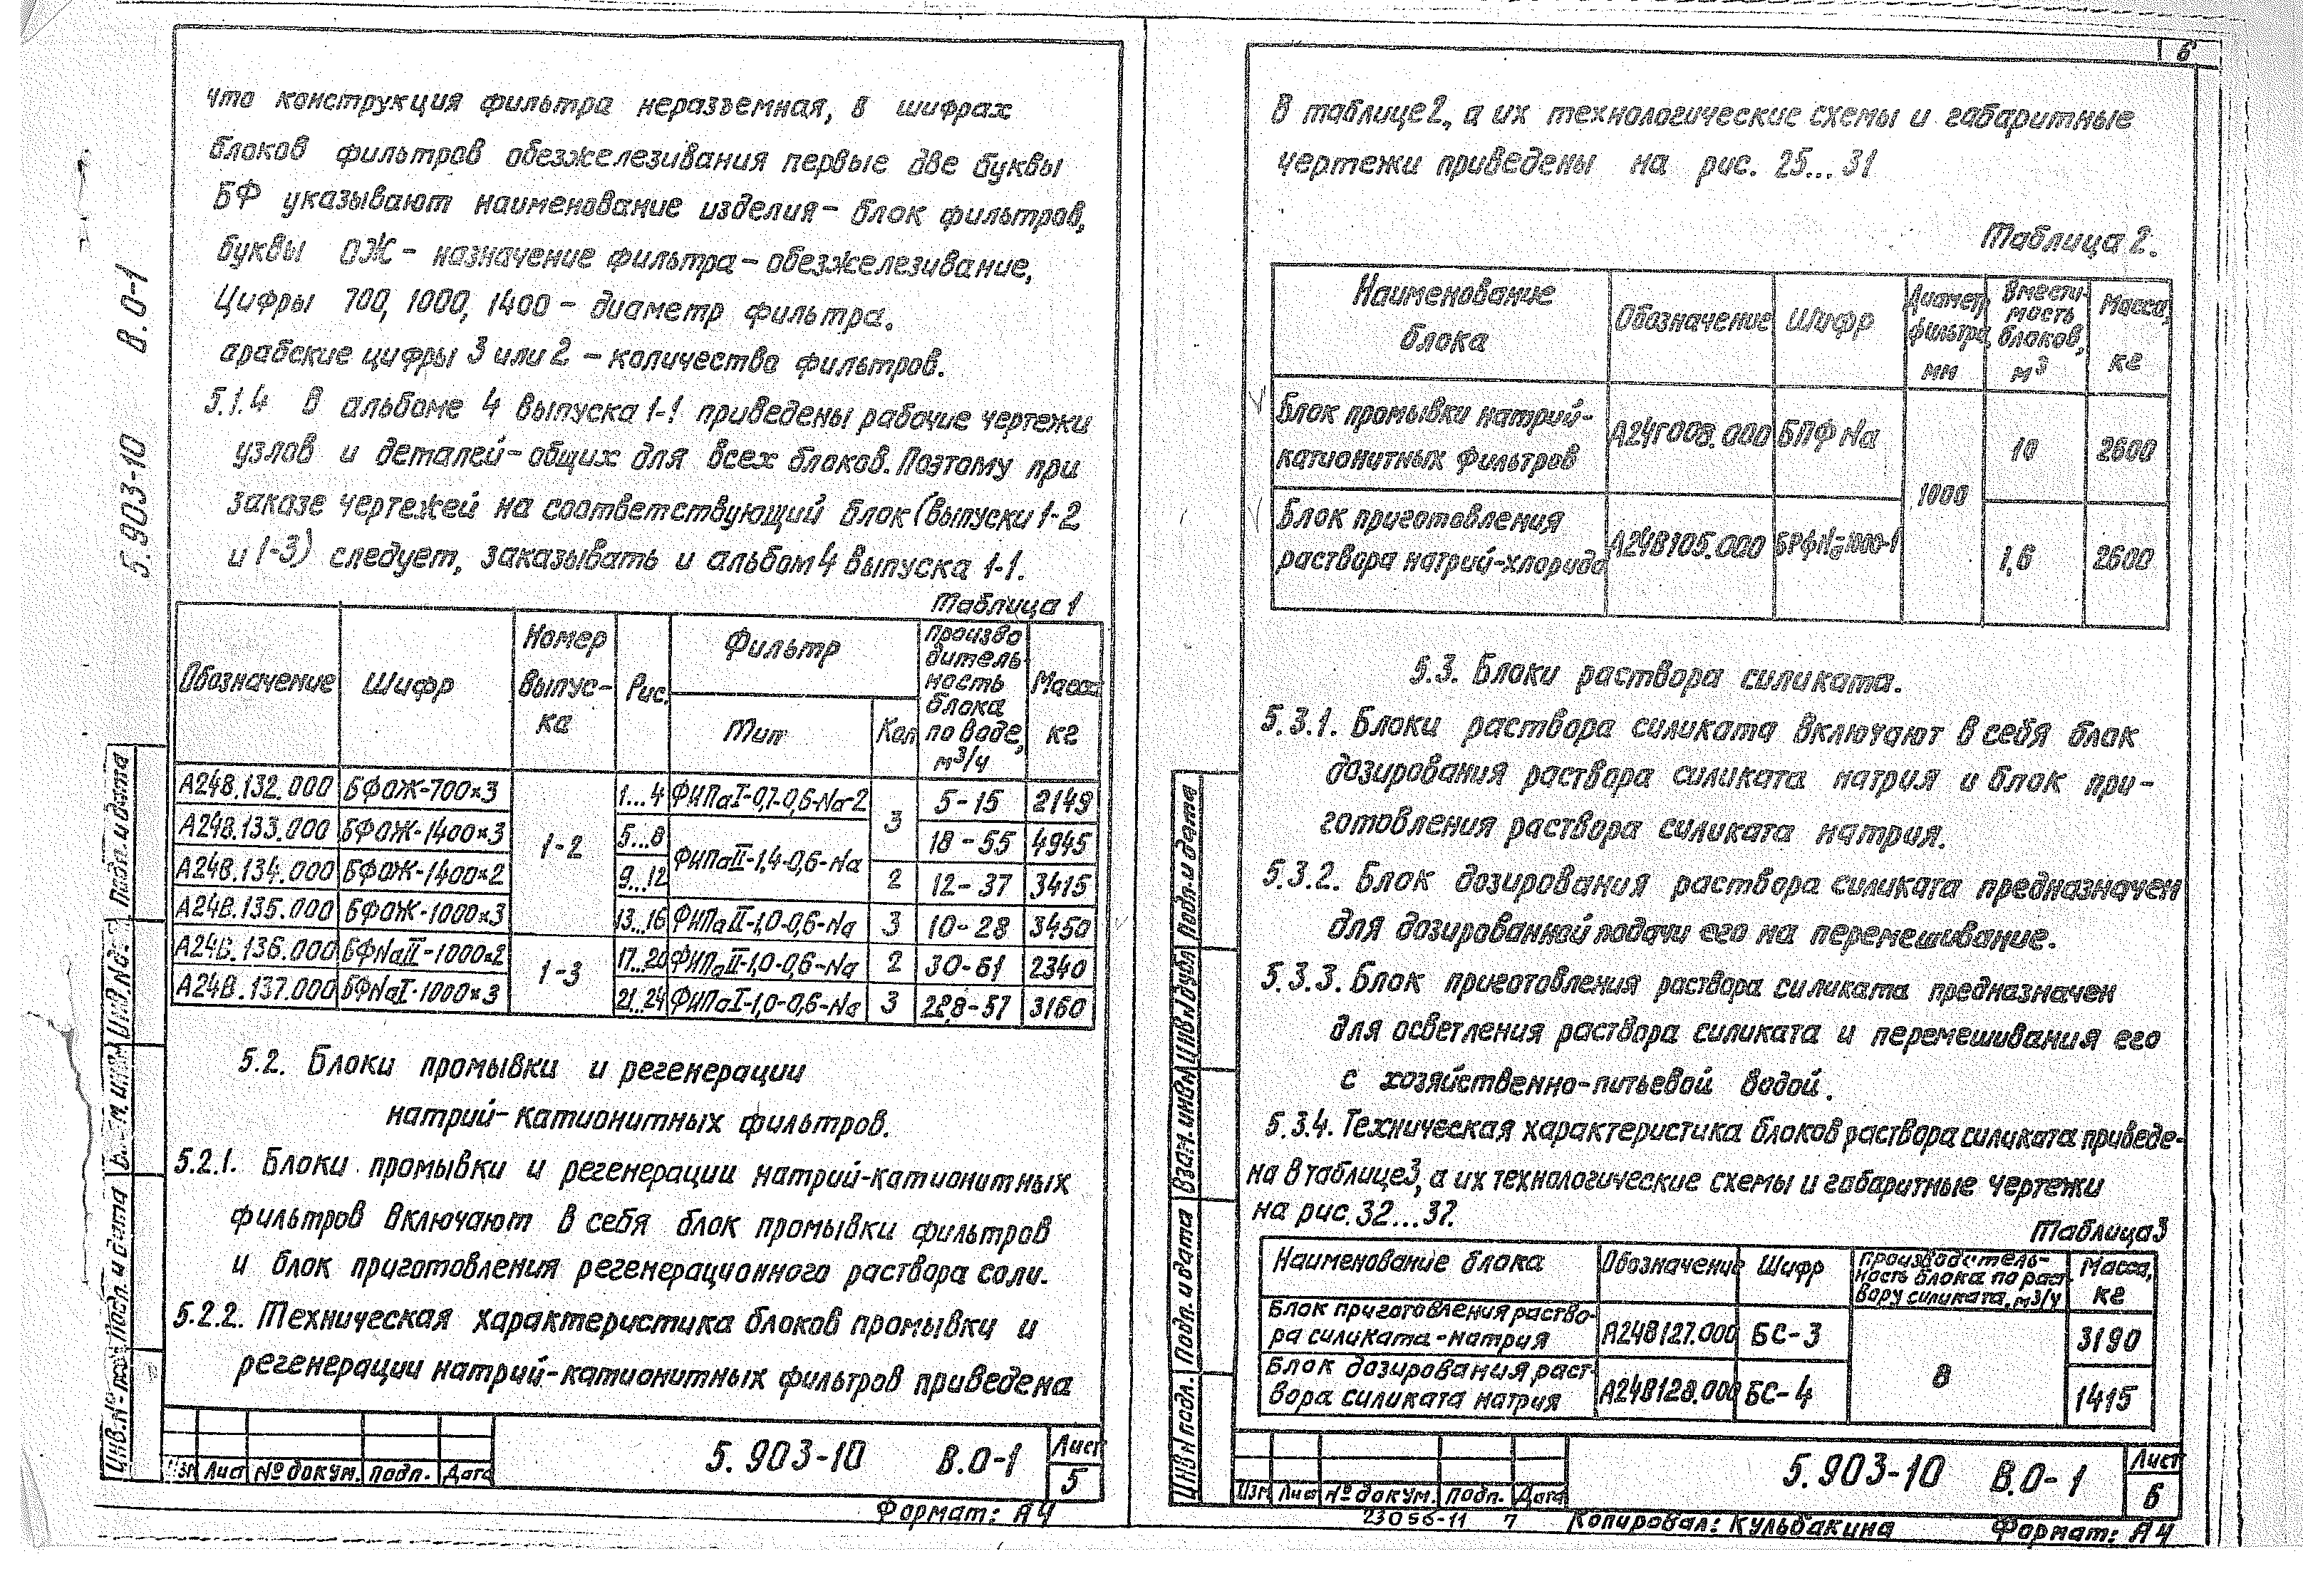 что конструкция фильтра неразъемная, в шифрах
блоков фильтров обезжелезивания первые две буквы
БФ указывают наименование изделия – блок фильтров,
буквы ОЖ – назначение фильтра – обезжелезивание,
Цифры 700, 1000, 1400 – диаметр фильтра.
арабские цифры 3 или 2 – количество фильтров.
5.1.4 В альбоме 4 выпуска 1-1 приведены рабочие чертежи
узлов и деталей – общих для всех блоков. Поэтому при
заказе чертежей на соответствующий блок (выпуски 1-2
и 1-3) следует, заказывать и альбом 4 выпуска 1-1.
Таблица 1
Обозначение Шифр Номер выпус-ка Рис. Фильтр Тип Кол Произво дитель-ность блока по воде, м³/ч Масса кг
А248.132.000 БФОЖ-700×3 1-2 1...4 ФИПаI-0,7-0,6-Na-2 3 5-15 2149
А248.133.000 БФОЖ-1400×3 5...8 ФИПаII-1,4-0,6-Na 18-55 4945
А248.134.000 БФОЖ-1400×2 9...12 2 12-37 3415
А248.135.000 БФОЖ-1000×3 13...16 ФИПаII-1,0-0,6-Na 3 10-28 3450
А248.136.000 БФNaII-1000×2 1-3 17...20 ФИПаII-1,0-0,6-Na 2 30-61 2340
А248.137.000 БФNaI-1000×3 21...24 ФИПаI-1,0-0,6-Na 3 22,8-57 3160
5.2. Блоки промывки и регенерации
натрий-катионитных фильтров.
5.2.1. Блоки промывки и регенерации натрий-катионитных
фильтров включают в себя блок промывки фильтров
и блок приготовления регенерационного раствора соли.
5.2.2. Техническая характеристика блоков промывки и
регенерации натрий-катионитных фильтров приведена
Изм Лист № докум. Подп. Дата
5.903-10 В.0-1
Лист
5
Формат: А4
5.903-10 8.0-1
Подп. и дата
Подп. и дата
6
В таблице 2, а их технологические схемы и габаритные
чертежи приведены на рис. 25...31
Таблица 2.
Наименование блока Обозначение Шифр Диаметр фильтра, мм Вмести-мость блоков, м³ Масса, кг
Блок промывки натрий-
катионитных фильтров А24Г008.000 БПФNa 1000 10 2600
Блок приготовления
раствора натрий-хлорида А248105.000 1,6 2600
5.3. Блоки раствора силиката.
5.3.1. Блоки раствора силиката включают в себя блок
дозирования раствора силиката натрия и блок при-
готовления раствора силиката натрия.
5.3.2. Блок дозирования раствора силиката предназначен
для дозированной подачи его на перемешивание.
5.3.3. Блок приготовления раствора силиката предназначен
для осветления раствора силиката и перемешивания его
с хозяйственно-питьевой водой.
5.3.4. Техническая характеристика блоков раствора силиката приведе-
на в таблице 3, а их технологические схемы и габаритные чертежи
на рис. 32...37.
Таблица 3
Наименование блока Обозначение Шифр Производитель-ность блока по раст-вору силиката, м³/ч Масса, кг
Блок приготовления раство-
ра силиката-натрия А248127.000 БС-3 8 3190
Блок дозирования раст-
вора силиката натрия А248128.000 БС-4 1415
Изм Лист № докум. Подп. Дата
5.903-10 В.0-1
Лист
6
23056-11 7
Копировал: Кульбакина
Формат: А4
Подп. и дата
Инв.№ дубл
Взам. инв.№
Подп. и дата
Инв.№ подл.